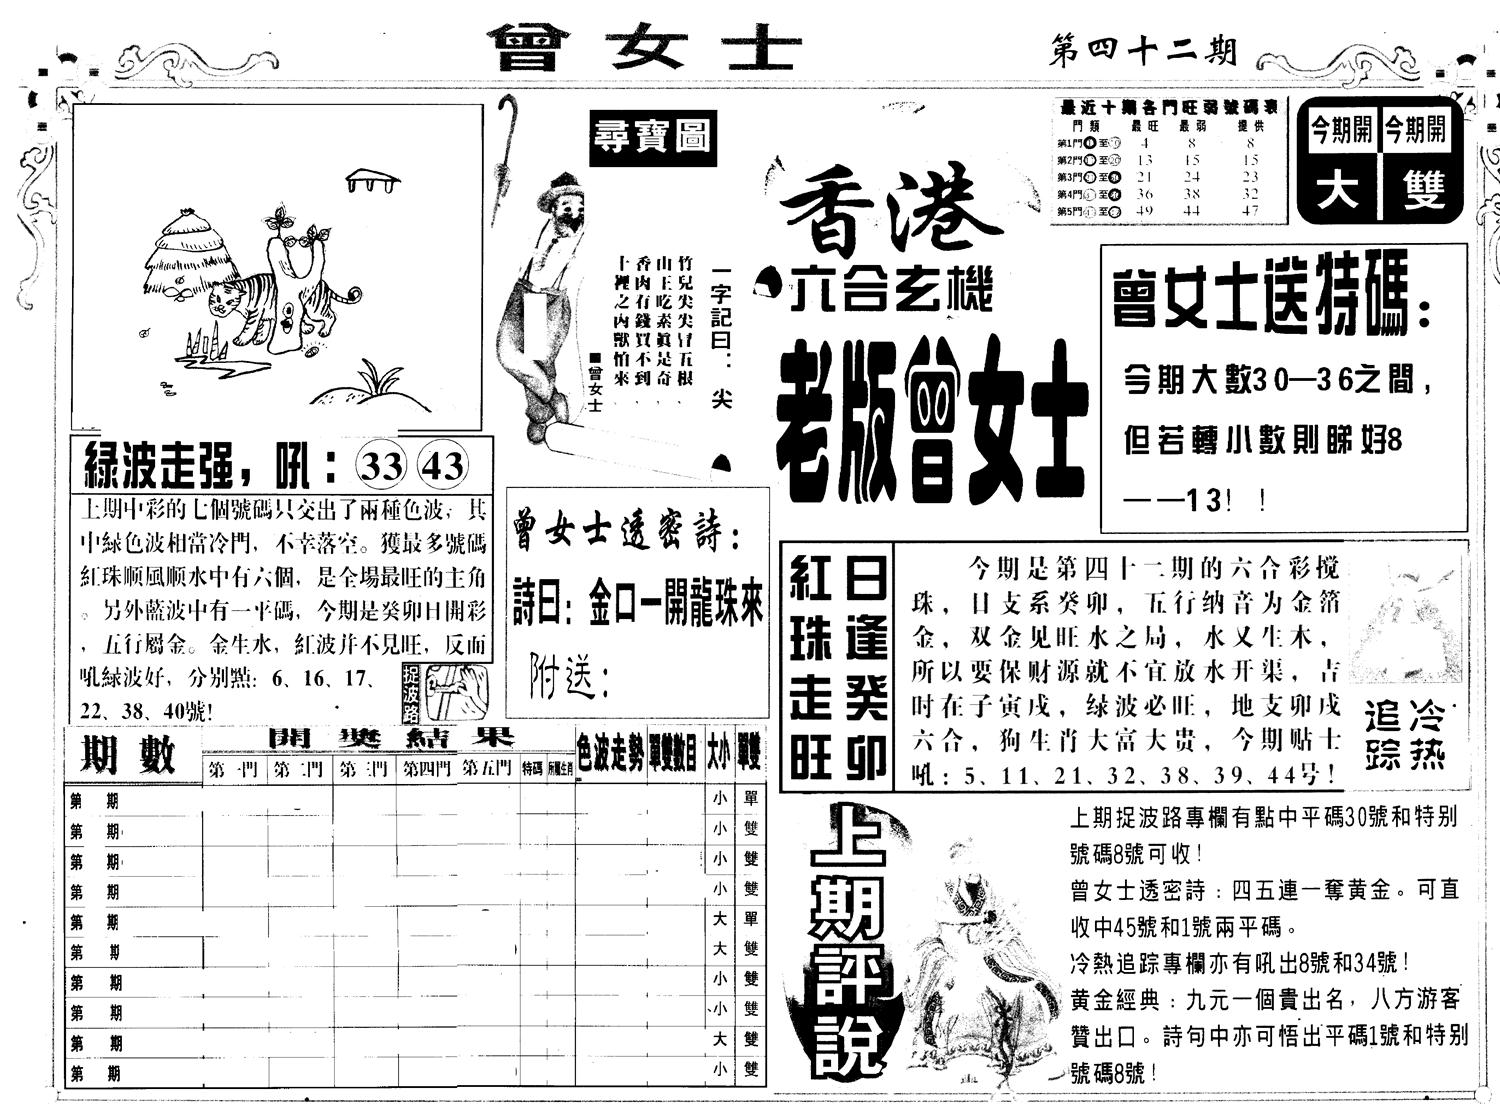 曾女士
第四十二期
尋寶圖
一字記曰：尖
竹兒尖尖冒五根、
山王吃素真是奇、
香肉有錢買不到、
十裡之內獸怕來、
■曾女士
香港
六合玄機
老版曾女士
最近十期各門旺弱號碼表
門類 最旺 最弱 提供
第1門 至 4 8 8
第2門 至 13 15 15
第3門 至 21 24 23
第4門 至 36 38 32
第5門 至 49 44 47
今期開 今期開
大 雙
曾女士送特碼：
今期大數30—36之間，
但若轉小數則睇好8
——13！！
綠波走强，吼：33 43
上期中彩的七個號碼只交出了兩種色波，其
中綠色波相當冷門，不幸落空。獲最多號碼
紅珠顺風顺水中有六個，是全場最旺的主角
。另外藍波中有一平碼，今期是癸卯日開彩
，五行屬金。金生水，紅波并不見旺，反面
吼綠波好，分别點：6、16、17、
22、38、40號!
捉波路
曾女士透密詩：
詩曰：金口一開龍珠來
附送：
日逢癸卯
紅珠走旺
今期是第四十二期的六合彩搅
珠，日支系癸卯，五行纳音为金箔
金，双金见旺水之局，水又生木，
所以要保财源就不宜放水开渠，吉
时在子寅戌，绿波必旺，地支卯戌
六合，狗生肖大富大贵，今期贴士
吼：5、11、21、32、38、39、44号!
冷热
追踪
期數 開獎結果 色波走勢 單雙數目 大小 單雙
第一門 第二門 第三門 第四門 第五門 特碼 所屬生肖
第 期 小 單
第 期 小 雙
第 期 小 雙
第 期 小 雙
第 期 大 單
第 期 大 雙
第 期 小 雙
第 期 小 雙
第 期 大 雙
第 期 小 雙
上期評說
上期捉波路專欄有點中平碼30號和特别
號碼8號可收!
曾女士透密詩：四五連一奪黃金。可直
收中45號和1號兩平碼。
冷熱追踪專欄亦有吼出8號和34號!
黄金經典：九元一個貴出名，八方游客
贊出口。詩句中亦可悟出平碼1號和特别
號碼8號!